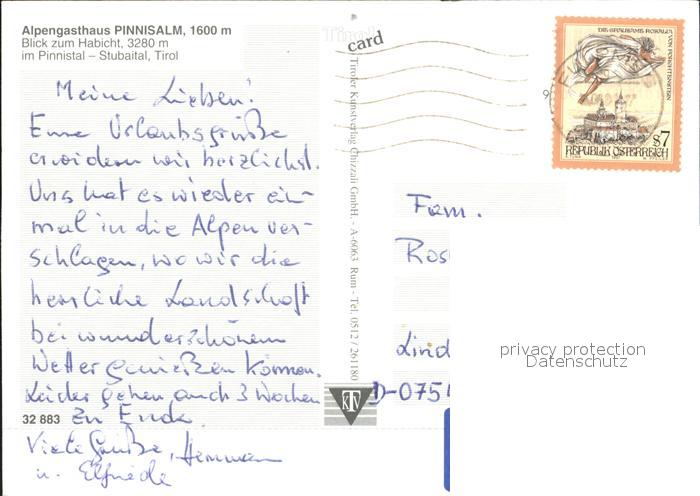 Alpengasthaus PINNISALM, 1600 m
Blick zum Habicht, 3280 m
im Pinnistal – Stubaital, Tirol
Meine Lieben!
Eure Urlaubsgrüße
erwidern wir herzlichst.
Uns hat es wieder ein-
mal in die Alpen ver-
schlagen, wo wir die
herrliche Landschaft
bei wunderschönem
Wetter genießen können.
Leider gehen auch 3 Wochen
zu Ende.
32 883
Viele Grüße, Hermann
u. Elfriede
Tirol
card
Tiroler Kunstverlag Chizzali GmbH. - A-6063 Rum - Tel. 0512 / 261180
KTV
DIE GRAUSAME ROSALIA VON FORCHTENSTEIN
S7
REPUBLIK ÖSTERREICH
Fam.
Ros
Lind
D-075
privacy protection
Datenschutz